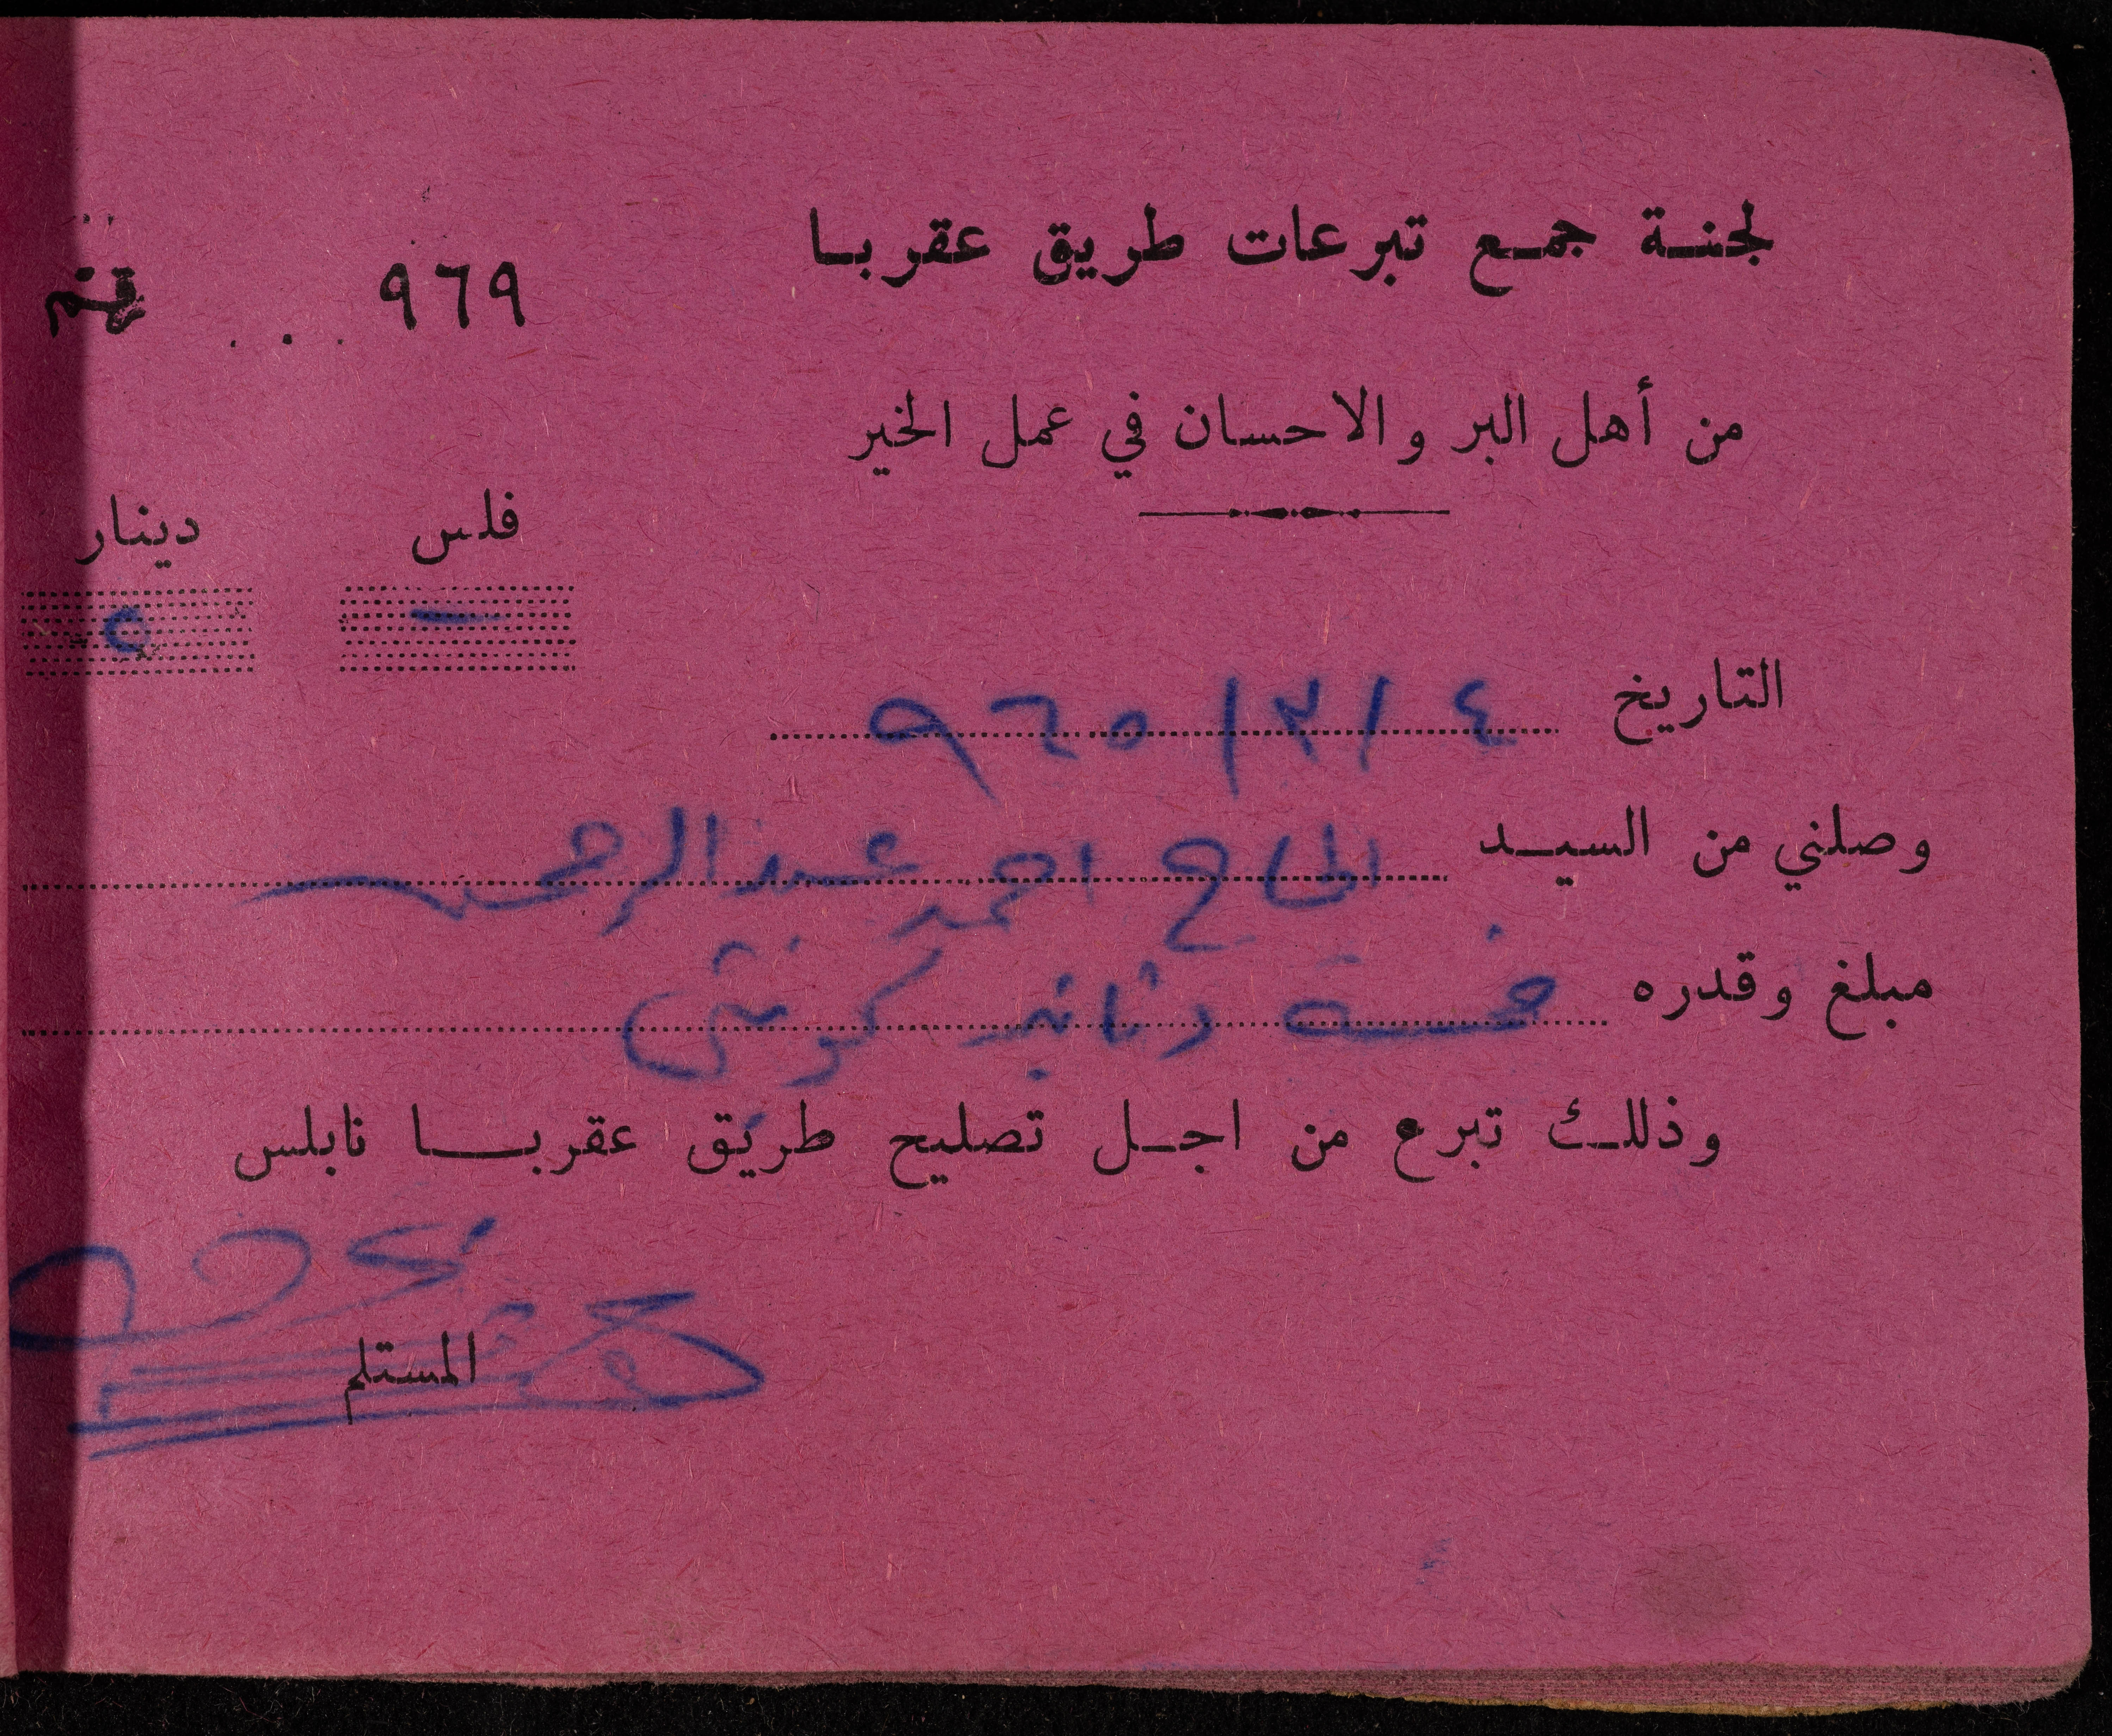 لجنة جمع تبرعات طريق عقربا
٩٦٩
من أهل البر والاحسان في عمل الخير
فلس دينار
— ٥
التاريخ ٤ / ٣ / ٩٦٥
وصلني من السيد الحاج احمد عبد الرحمن
مبلغ وقدره خمسة دنانير كويتي
وذلك تبرع من اجل تصليح طريق عقربا نابلس
المستلم